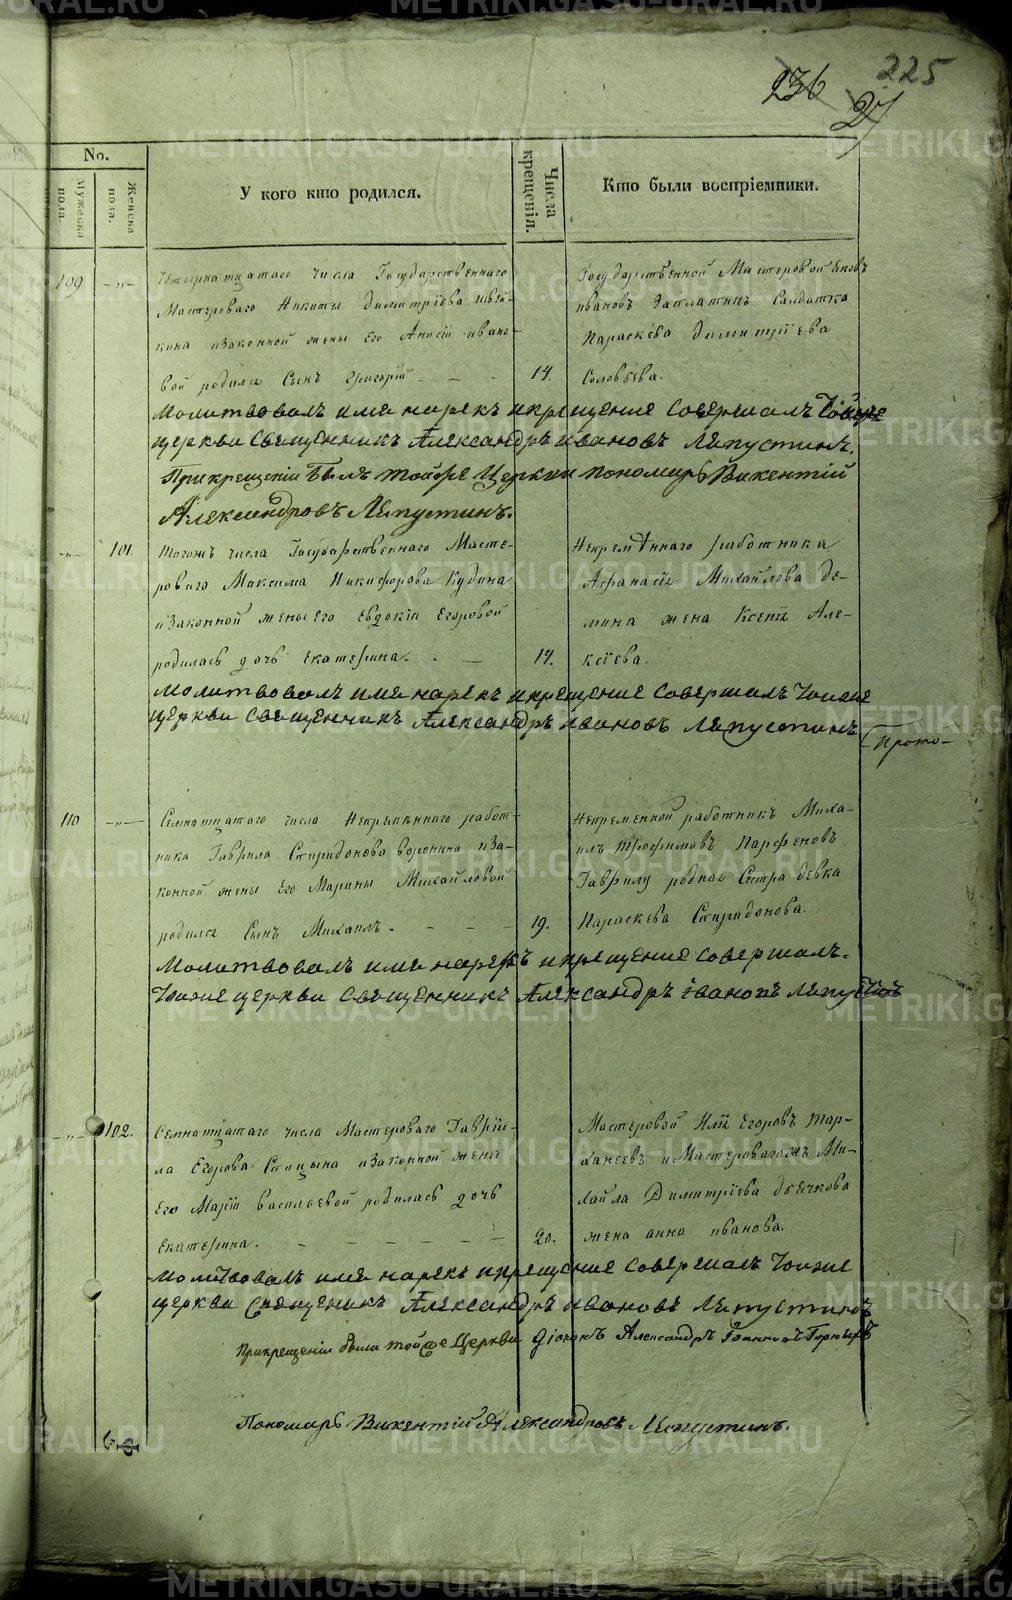 METRIKI.GASO-URAL.RU
225
236
27
No.
Мужеска пола.
Женска пола.
У кого кто родился.
Числа крещенія.
Кто были воспріемники.
109
Четырнатцатаго числа Государственнаго
Мастероваго Никиты Димитріева швей-
кина изаконной жены Его Анисіи ивано-
вой родился Сынъ Григорій
14.
Государственной Мастеровой Яковъ
ивановъ Заплатинъ Салдатка
Параскева димитріева
Соловьева.
Молитвовалъ имя нарекъ икрещение совершалъ Тойже
церкви Священникъ Александръ ивановъ Ляпустинъ.
Прикрещеніи Былъ тойже Церкви пономарь Викентій
Александровъ Ляпустинъ.
101.
Тогожъ числа Государственнаго Масте-
роваго Максима Никифорова Кудина
изаконной жены Его Евдокіи Егоровой
родилась дочь Екатерина.
14.
Непремѣннаго работника
Афанасія Михайлова де-
мина жена Ксенія Але-
ксіева.
Молитвовалъ имя нарекъ икрещение совершалъ Тоиже
церкви Священникъ Александръ ивановъ Ляпустинъ
Прото-
110
Семнатцатаго числа Непремѣннаго работ-
ника Гаврила Спиридонова воронина иза-
конной жены Его Марины Михайловой
родился Сынъ Михаилъ.
19.
Непременной работникъ Миха-
илъ Трофимовъ Парфеновъ
Гаврилу родная Сестра девка
Параскева Спиридонова.
Молитвовалъ имя нарекъ икрещение совершалъ.
Тоиже церкви Священникъ Александръ Ивановъ Ляпустинъ
102.
Семнатцатаго числа Мастероваго Гаврій-
ла Егорова Спицына изаконной жены
Его Маріи васильевой родилась дочь
Екатерина.
20.
Мастеровой Илія Егоровъ тар-
ханеевъ иМастероваго Ми-
хайла Димитріева дьячкова
жена анна иванова.
Молитвовалъ имя нарекъ икрещение совершалъ Тоиже
церкви Священикъ Александръ ивановъ Ляпустинъ
Прикрещеніи были тойже Церкви діаконъ Александръ
Пономарь Викентій Александровъ Ляпустинъ.